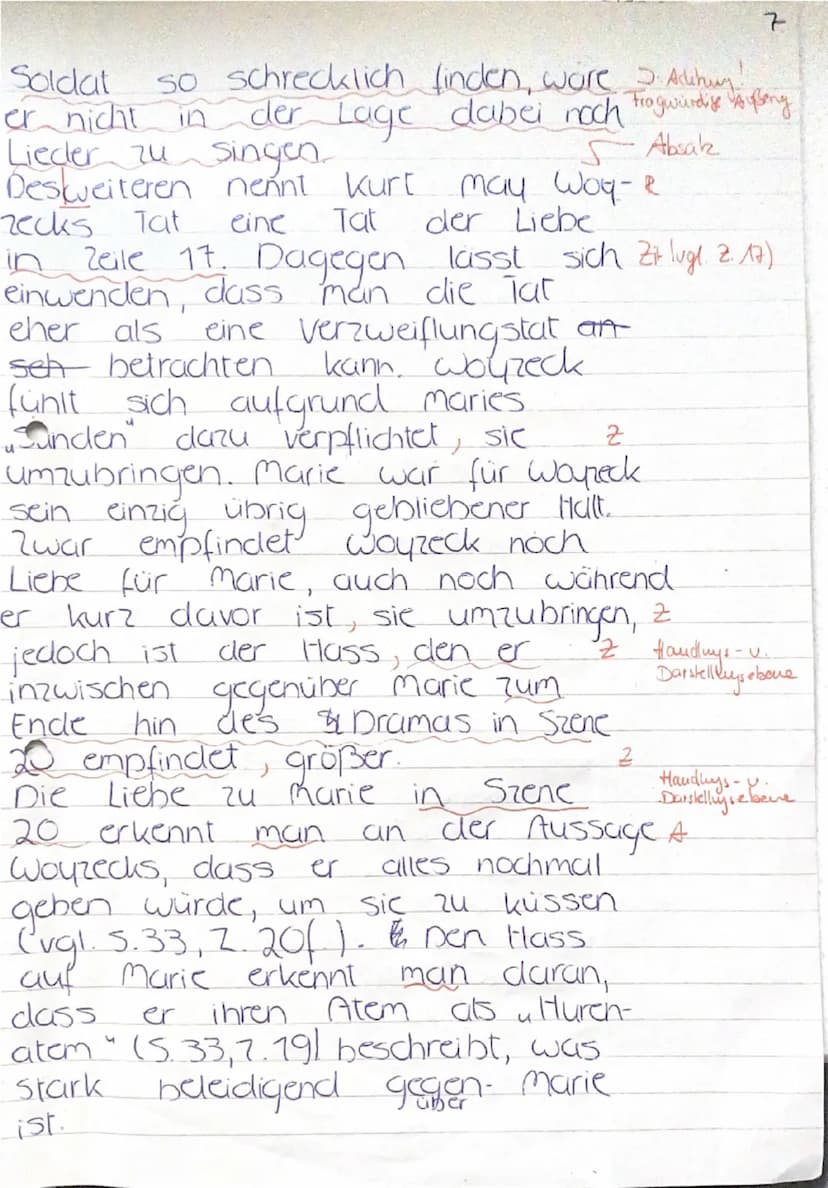 7
Soldat so schrecklich finden, wäre Achtung!
er nicht in der Lage dabei noch Fragwürdige
Lieder zu singen. Absatz
Desweiteren nennt Kurt May Woy- R
zecks Tat eine Tat der Liebe
in Zeile 17. Dagegen lässt sich Zt (vgl. Z. 17)
einwenden, dass man die Tat
eher als eine Verzweiflungstat an
seh betrachten kann. Woyzeck
fühlt sich aufgrund Maries
„Sünden“ dazu verpflichtet, sie Z
umzubringen. Marie war für Woyzeck
sein einzig übrig gebliebener Halt.
Zwar empfindet Woyzeck noch
Liebe für Marie, auch noch während
er kurz davor ist, sie umzubringen, Z
jedoch ist der Hass, den er Z Handlungs- u.
inzwischen gegenüber Marie zum Darstellungsebene
Ende hin des Dramas in Szene
20 empfindet, größer. Z
Die Liebe zu Marie in Szene Handlungs- u. Darstellungsebene
20 erkennt man an der Aussage A
Woyzecks, dass er alles nochmal
geben würde, um sie zu küssen
(vgl. S. 33, Z. 20f.). Den Hass
auf Marie erkennt man daran,
dass er ihren Atem als „Huren-
atem“ (S. 33, Z. 19) beschreibt, was
stark beleidigend gegen- Marie
über
ist.